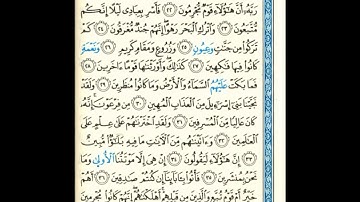 رَبَّهُۥٓ أَنَّ هَٰٓؤُلَآءِ قَوْمٌ مُّجْرِمُونَ ٢٢ فَأَسْرِ بِعِبَادِى لَيْلًا إِنَّكُم
مُّتَّبَعُونَ ٢٣ وَٱتْرُكِ ٱلْبَحْرَ رَهْوًا إِنَّهُمْ جُندٌ مُّغْرَقُونَ ٢٤ كَمْ
تَرَكُوا۟ مِن جَنَّٰتٍ وَعُيُونٍ ٢٥ وَزُرُوعٍ وَمَقَامٍ كَرِيمٍ ٢٦ وَنَعْمَةٍ
كَانُوا۟ فِيهَا فَٰكِهِينَ ٢٧ كَذَٰلِكَ وَأَوْرَثْنَٰهَا قَوْمًا ءَاخَرِينَ ٢٨
فَمَا بَكَتْ عَلَيْهِمُ ٱلسَّمَآءُ وَٱلْأَرْضُ وَمَا كَانُوا۟ مُنظَرِينَ ٢٩ وَلَقَدْ
نَجَّيْنَا بَنِىٓ إِسْرَٰٓءِيلَ مِنَ ٱلْعَذَابِ ٱلْمُهِينِ ٣٠ مِن فِرْعَوْنَ إِنَّهُۥ
كَانَ عَالِيًا مِّنَ ٱلْمُسْرِفِينَ ٣١ وَلَقَدِ ٱخْتَرْنَٰهُمْ عَلَىٰ عِلْمٍ عَلَى
ٱلْعَٰلَمِينَ ٣٢ وَءَاتَيْنَٰهُم مِّنَ ٱلْءَايَٰتِ مَا فِيهِ بَلَٰٓؤٌا۟ مُّبِينٌ
٣٣ إِنَّ هَٰٓؤُلَآءِ لَيَقُولُونَ ٣٤ إِنْ هِىَ إِلَّا مَوْتَتُنَا ٱلْأُولَىٰ وَمَا
نَحْنُ بِمُنشَرِينَ ٣٥ فَأْتُوا۟ بِـَٔابَآئِنَآ إِن كُنتُمْ صَٰدِقِينَ ٣٦ أَهُمْ
خَيْرٌ أَمْ قَوْمُ تُبَّعٍ وَٱلَّذِينَ مِن قَبْلِهِمْ أَهْلَكْنَٰهُمْ إِنَّهُمْ كَانُوا۟ مُجْرِمِينَ